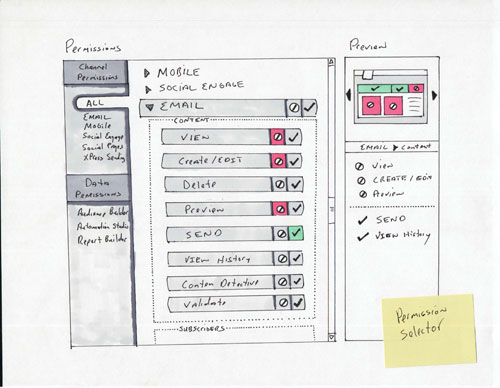 Permissions
Channel
Permissions
ALL
EMAIL
Mobile
Social Engage
Social Pages
XPress Sending
Data
Permissions
Audience Builder
Automation Studio
Report Builder
MOBILE
SOCIAL ENGAGE
EMAIL
CONTENT
VIEW
Create/EDIT
Delete
Preview
SEND
VIEW History
Conten Detective
Validate
SUBSCRIBERS
Preview
EMAIL Content
View
CREATE/EDIT
Preview
SEND
VIEW History
Permission
Selector